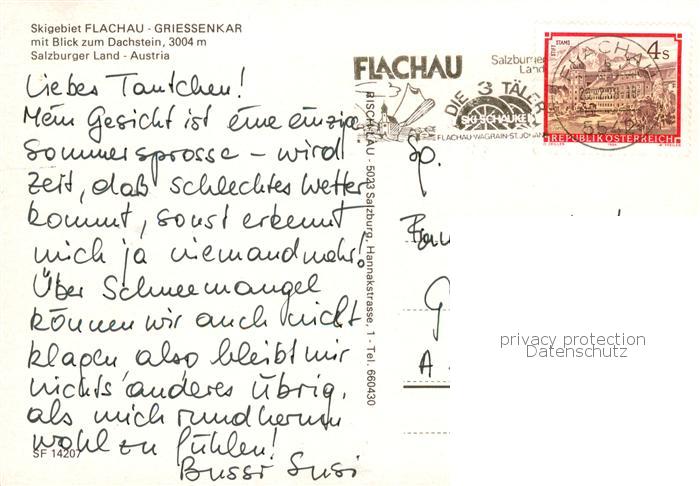 Skigebiet FLACHAU - GRIESSENKAR
mit Blick zum Dachstein, 3004 m
Salzburger Land - Austria
Liebes Tantchen!
Mein Gesicht ist eine einzige
Sommersprosse - wird
Zeit, daß schlechtes Wetter
kommt, sonst erkennt
mich ja niemand mehr!
Über Schneemangel
können wir auch nicht
klagen also bleibt mir
nichts anderes übrig,
als mich rundherum
wohl zu fühlen!
Bussi Susi
SF 14207
RISCH-LAU - 5023 Salzburg, Hannakstrasse, 1 - Tel. 660430
FLACHAU
Salzburger
Land
DIE 3 TÄLER
SKI-SCHAUKEL
FLACHAU-WAGRAIN-ST. JOHANN
STIFT STAMS
4 S
REPUBLIK ÖSTERREICH
Sp.
G
A
privacy protection
Datenschutz